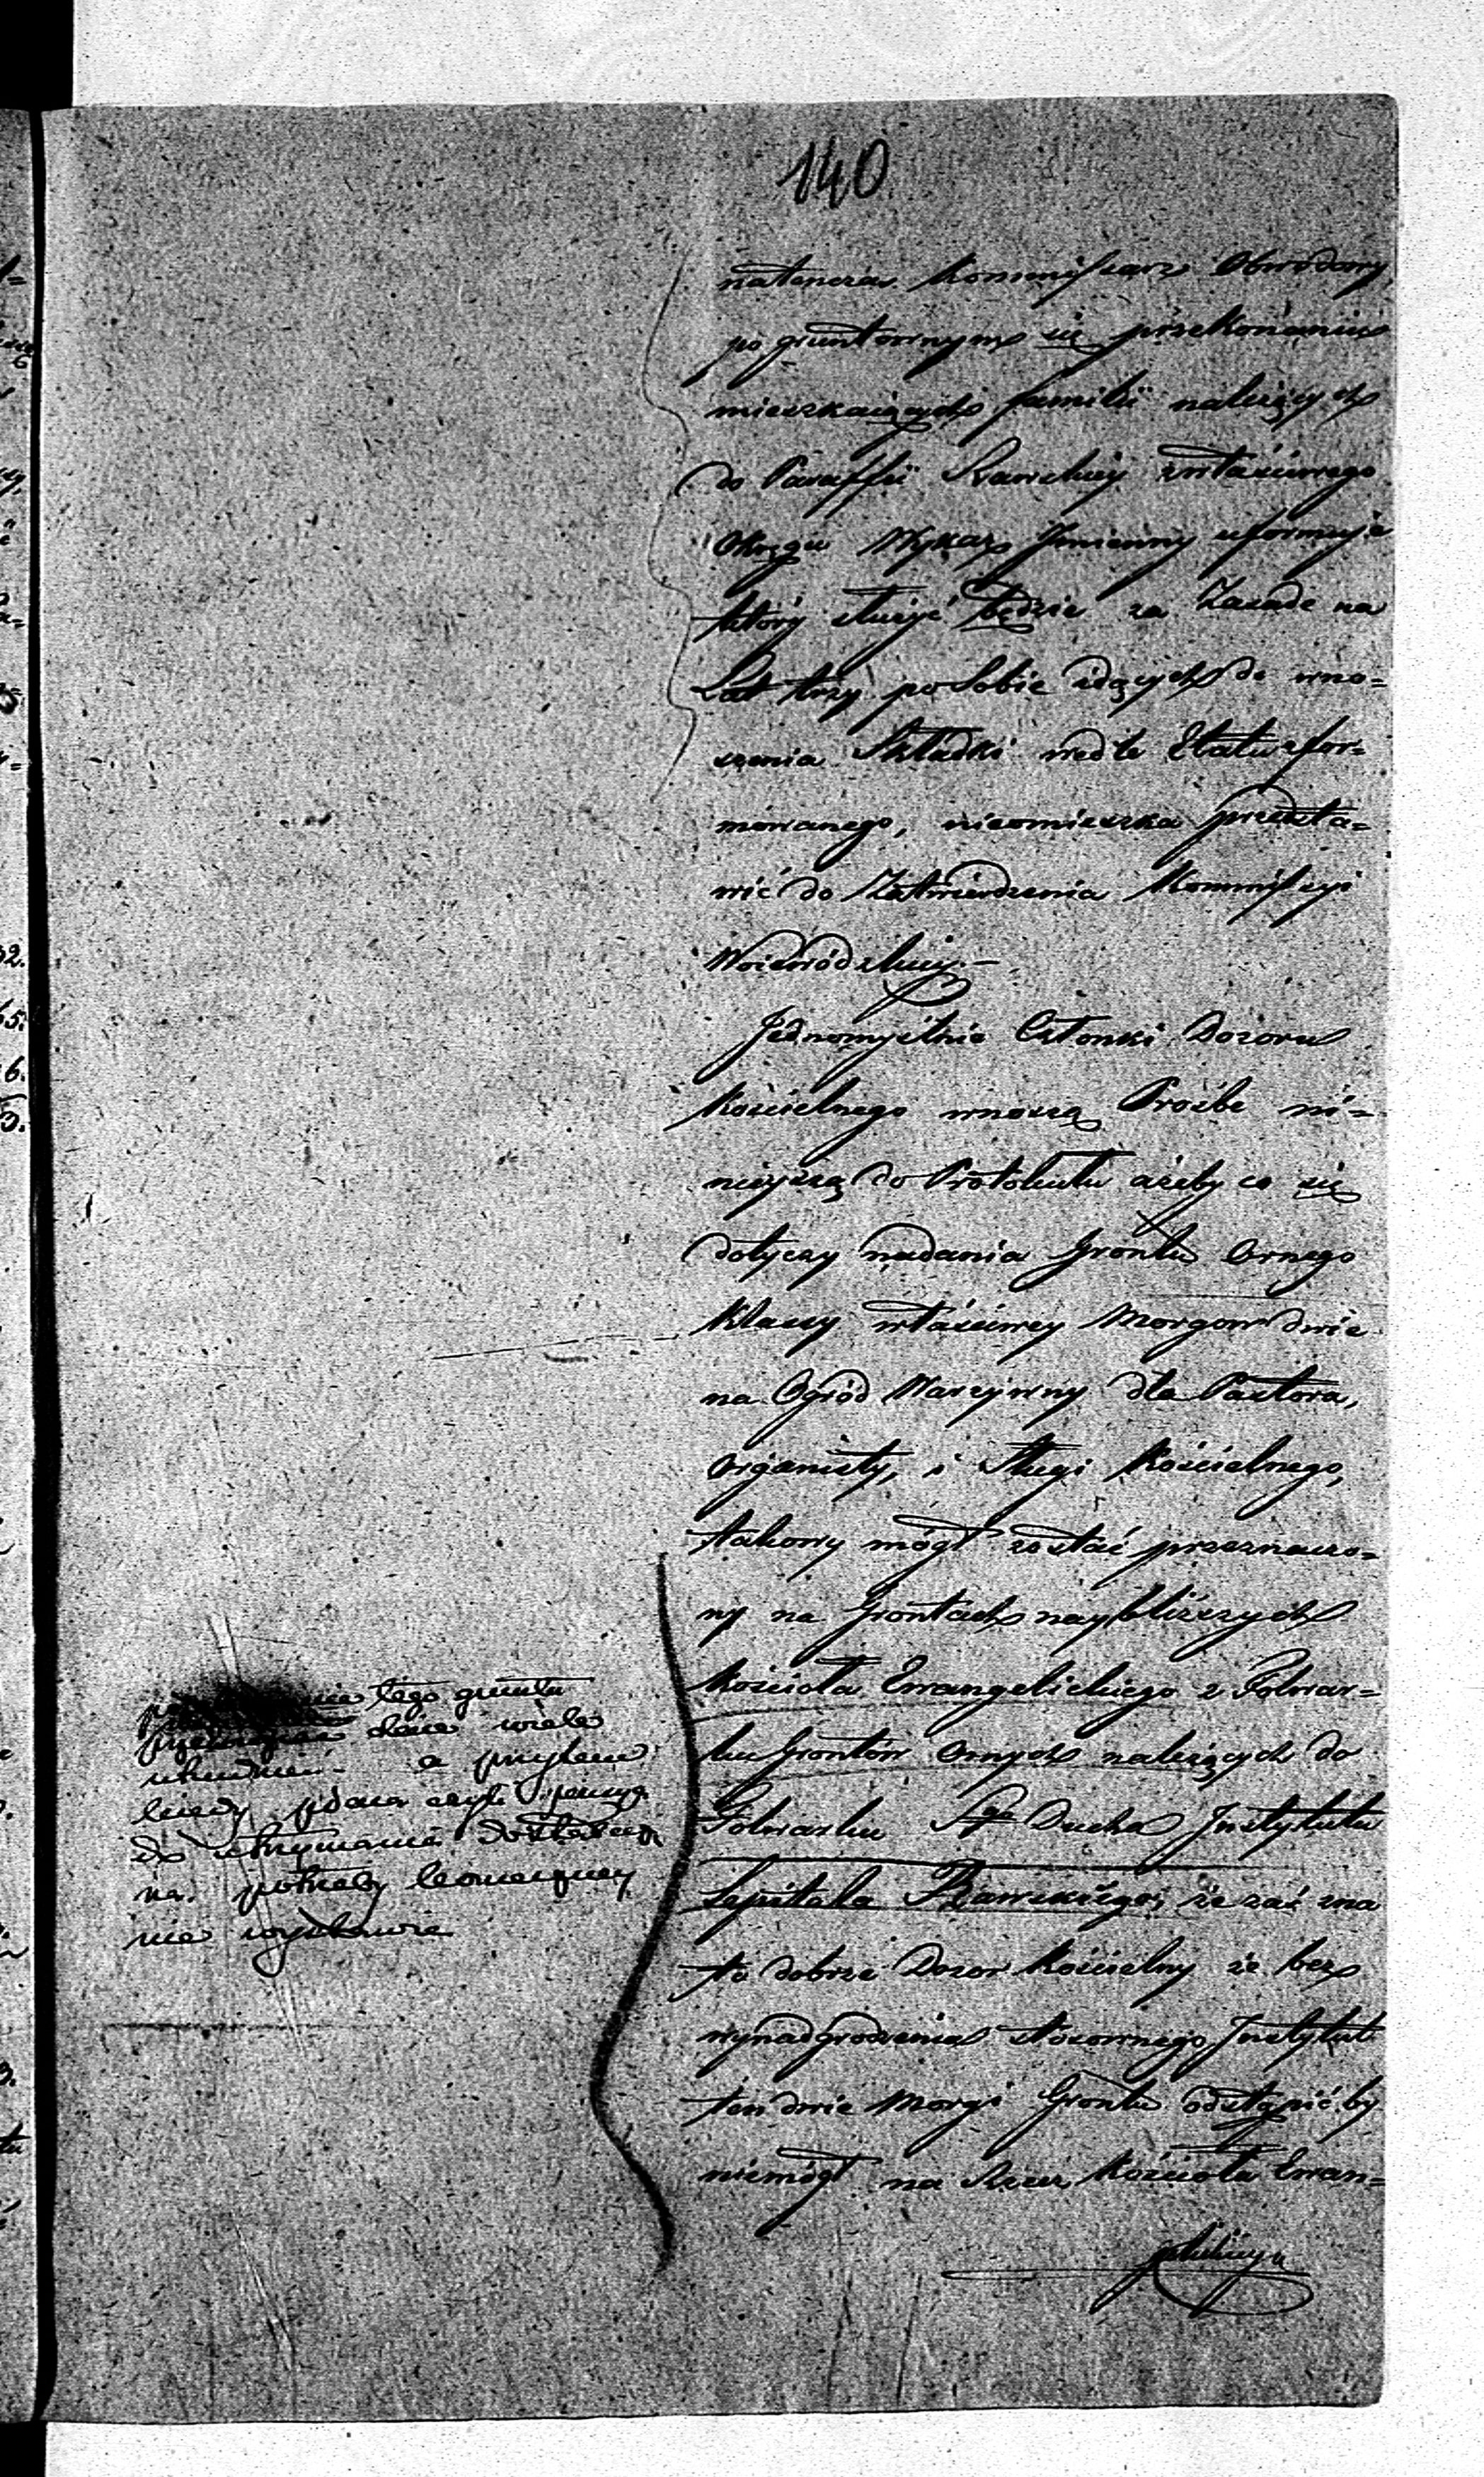 140
natenczas Kommissarz Obwodowy
po gruntownym się przekonaniu
mieszkaiących familii należących
do Paraffii Rawskiey z właściwego
Okręgu Wykaz Jmienny uformuje
który służyć będzie za Zasade na
Lat trzy po sobie idących do wno=
szenia Składki wedle Etatu sfor=
mowanego, nieomieszka przedsta=
wić do Zatwierdzenia Kommissyi
Woiewódzkiey.—
Jednomyślnie Członki Dozoru
Kościelnego wnoszą Prośbe ni=
nieyszą do Protokułu ażeby co się
dotyczy nadania Grontu Ornego
Klassy właściwey Morgow dwie
na Ogród Warzywny dla Pastora,
Organisty, i Sługi Kościelnego,
takowy mógł zostać przeznaczo=
ny na Grontach naybliższych
Kościoła Ewangelickiego z Folwar=
ku Grontów Ornych należących do
Folwarku Sgo Ducha Jnstytutu
Szpitala Rawskiego, że zaś zna
to dobrze Dozor Kościelny że bez
wynadgrodzenia stosownego Jnstytut
ten dwie Morgi Grontu odstąpić by
niemógł na Rzecz Kościoła Ewan=
gelickiego
tego gruntu
wiele
a
do utrzymania
na potrzeby
nie